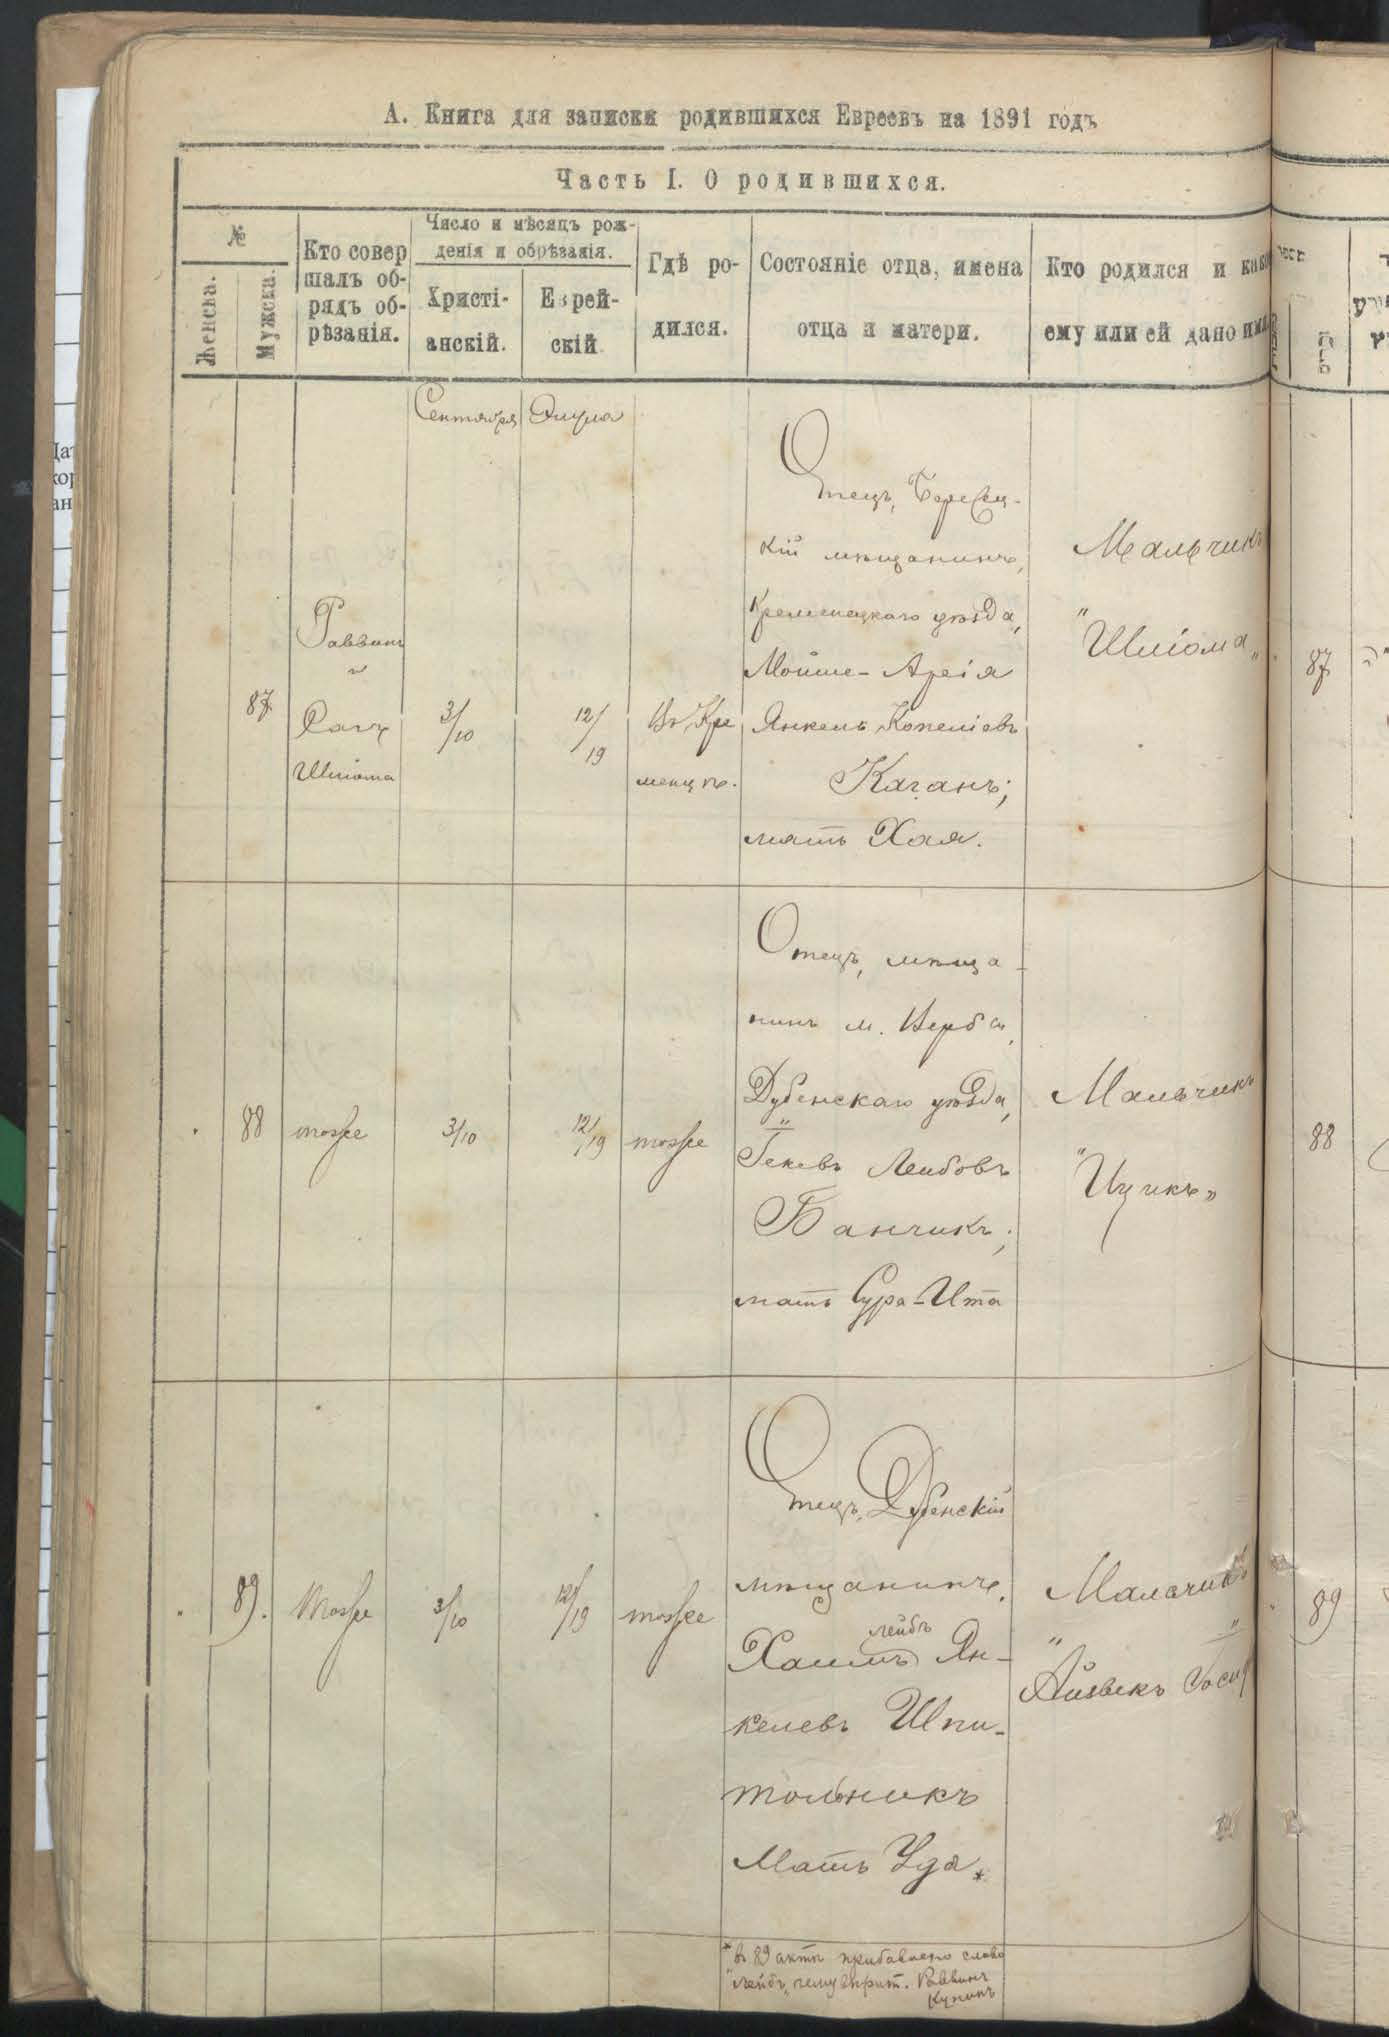 А. Книга для записки родившихся Евреевъ на 1891 годъ
Часть I. О родившихся.
№
Женска.
Мужска.
Кто совер
шалъ об-
рядъ об-
рѣзанія.
Число и мѣсяцъ рож-
денія и обрѣзанія.
Христі-
анскій.
Еврей-
скій
Гдѣ ро-
дился.
Состояніе отца, имена
отца и матери.
Кто родился и как
ему или ей дано имя
Сентября
Элула
87
Раввинъ
и
Шліома
3/10
12/19
Въ Кре
менцѣ.
Отецъ,
кій мѣщанинъ,
Кременецкаго уѣзда,
Мойше-Арія
Янкель Копеліовъ
Каганъ;
мать Хая.
Мальчикъ
"Шліома"
87
88
тоже
3/10
12/19
тоже
Отецъ, мѣща-
нинъ м. Верба,
Дубенскаго уѣзда,
Лейбовъ
Банчикъ;
мать Сура-Ита
Мальчикъ
"Ицикъ"
88
89.
тоже
3/10
12/19
тоже
Отецъ, Дубенскій
мѣщанинъ,
лейбъ
Хаимъ Ян-
келевъ Шпи-
тольникъ
Мать Уда *
Мальчикъ
"Айзыкъ
89
* въ 89 актѣ прибавлено слово
"лейбъ, чему вѣрит. Раввинъ
Кунинъ